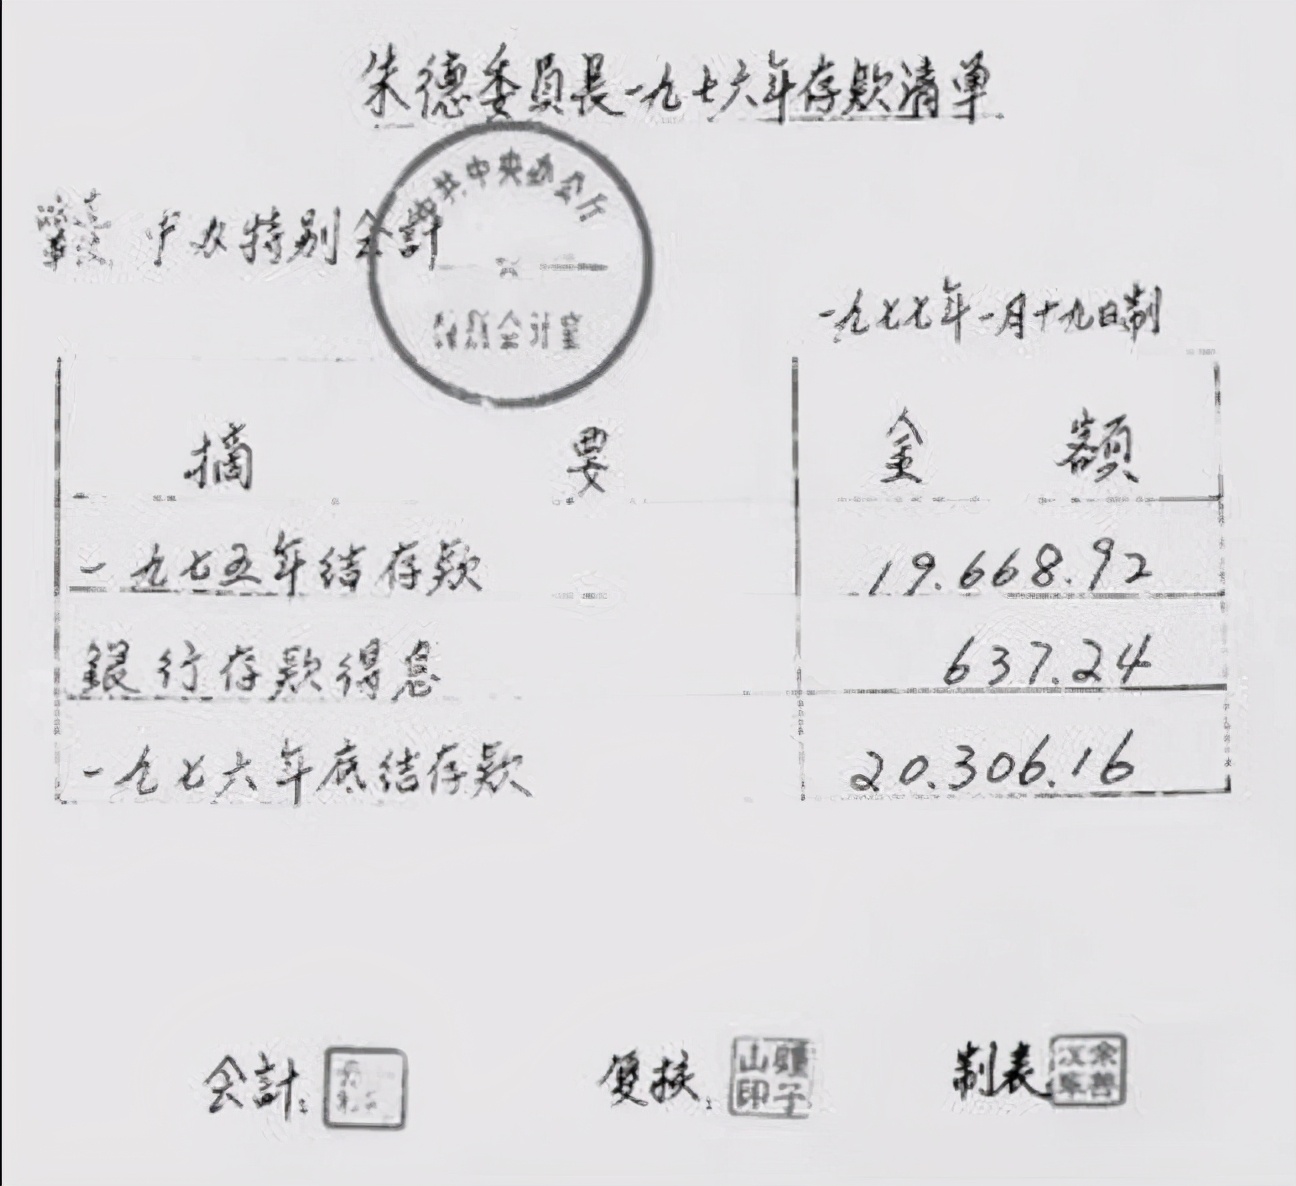 朱德委員長一九七六年存款清单
中共中央办公厅
中办特别会計
特别会计室
一九七七年一月十九日制
摘 要 金 額
一九七五年结存款 19.668.92
銀行存款得息 637.24
一九七六年底结存款 20.306.16
会計: 复核: 制表